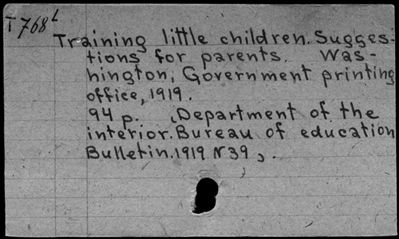 T 768 L
Training little children. Sugges-
tions for parents. Was-
hington, Government printing
office, 1919.
94 p. (Department of the
interior. Bureau of education
Bulletin. 1919 N 39).